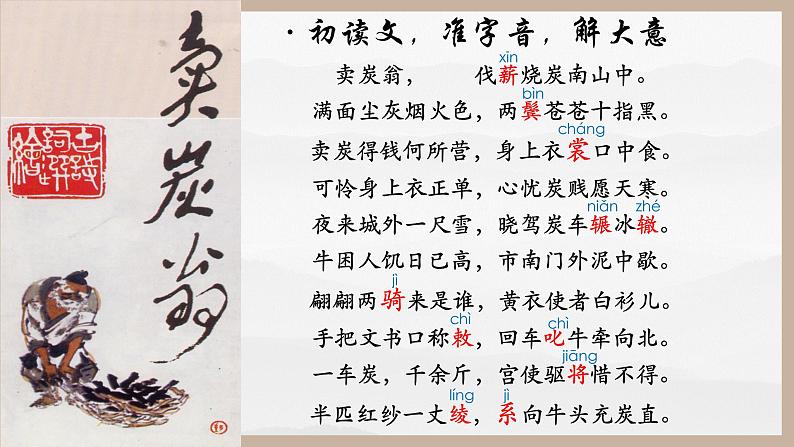 賣炭翁
古詩詞選繪
·初读文，准字音，解大意
xīn
卖炭翁， 伐薪烧炭南山中。
bìn
满面尘灰烟火色，两鬓苍苍十指黑。
cháng
卖炭得钱何所营，身上衣裳口中食。
可怜身上衣正单，心忧炭贱愿天寒。
niǎn zhé
夜来城外一尺雪，晓驾炭车辗冰辙。
牛困人饥日已高，市南门外泥中歇。
jì
翩翩两骑来是谁，黄衣使者白衫儿。
chì chì
手把文书口称敕，回车叱牛牵向北。
jiāng
一车炭，千余斤，宫使驱将惜不得。
líng jì
半匹红纱一丈绫，系向牛头充炭直。